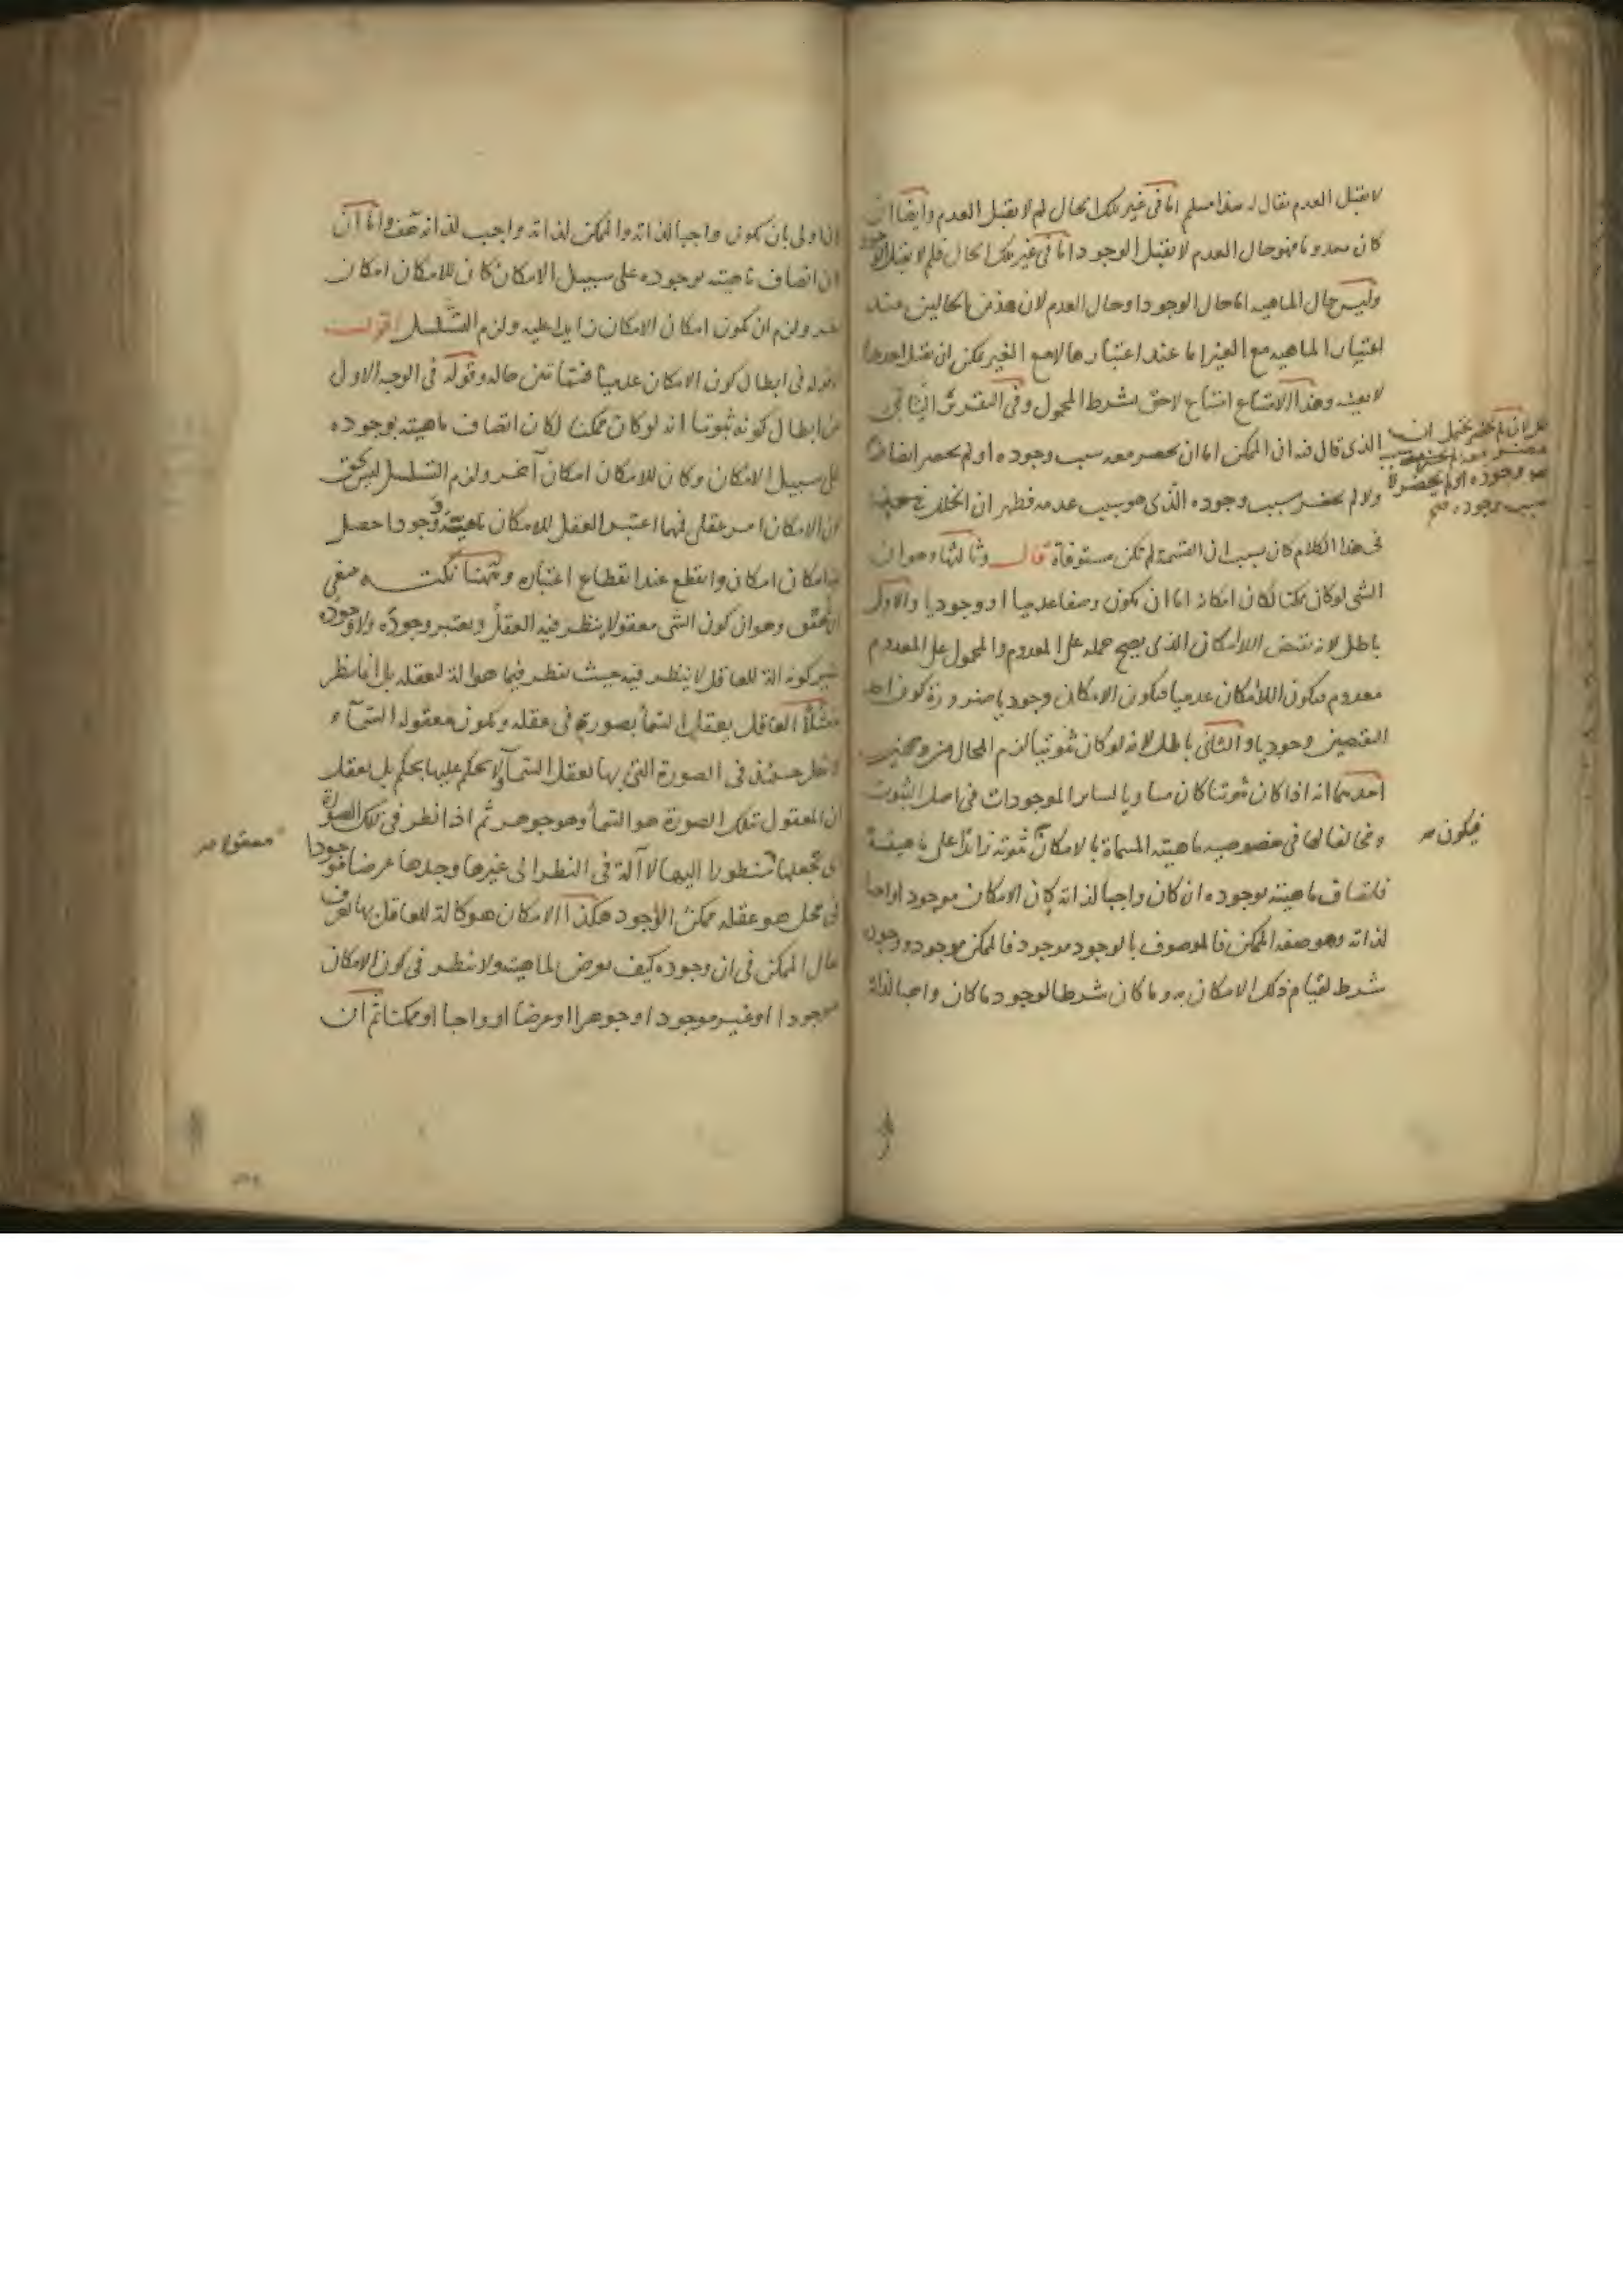 لا يقبل العدم يقال له هذا مسلم اما فى غير تلك الحال لم لا يقبل العدم وايضا ان
كان معدوما فهو حال العدم لا يقبل الوجود اما فى غير تلك الحال فلم لا يقبل الوجود
وليس حال الماهيه اما حال الوجود او حال العدم لان هذين الحالين عند
اعتبار الماهيه مع الغير اما عند اعتبارها لا مع الغير يمكن ان يقبل احدهما
لا بعينه وهذا الامتناع امتناع لاحق بشرط المحمول وفى التقرير الثانى
الذى قال فيه ان الممكن اما ان يحضر معه سبب وجوده او لم يحضر ايضا
ولا لم يحضر سبب وجوده الذى هو سبب عدمه فظهر ان الخلل
فى هذا الكلام كان بسبب ان القسمة لم تكن مستوفاة قال وثالثها وهو ان
الشى لو كان ممكنا لكان امكانه اما ان يكون وصفا عدميا او وجوديا والاول
باطل لانه نقيض اللاامكان الذى يصح حمله على المعدوم والمحمول على المعدوم
معدوم فيكون اللاامكان عدميا فيكون الامكان وجوديا ضرورة كون احد
النقيضين وجوديا والثانى باطل لانه لو كان ثبوتيا لزم المحال من وجهين
احدهما انه اذا كان ثبوتيا كان مساويا لساير الموجودات فى اصل الثبوت
ومخالفا لها فى خصوصيه ماهيته المسماة بالامكان ثبوته زائدا على ماهيته
فيكون
فاتصاف ماهيته بوجوده ان كان واجبا لذاته كان الامكان موجودا واجبا
لذاته وهو صفه الممكن فالموصوف بالوجود موجود فالممكن موجود ووجوده
شرط لقيام ذلك الامكان به وما كان شرطا لوجود ما كان واجبا لذاته
اولى بان يكون واجبا لذاته والممكن لذاته واجب لذاته هف واما ان
كان اتصاف ماهيته بوجوده على سبيل الامكان كان للامكان امكان
ولزم ان يكون امكان الامكان زايدا عليه ولزم التسلسل اقول
قوله فى ابطال كون الامكان عدميا حاله وقوله فى الوجه الاول
من ابطال كونه ثبوتيا انه لو كان ممكنا لكان اتصاف ماهيته بوجوده
على سبيل الامكان وكان للامكان امكان آخر ولزم التسلسل
ان الامكان امر عقلى فمهما اعتبر العقل للامكان ماهية ووجودا حصل
امكان امكان وانقطع عند انقطاع اعتباره وههنا نكت
وهو ان كون الشى معقولا ينظر فيه العقل ويعتبر وجوده ولا وجوده
غير كونه الة للعاقل لا ينظر فيه حيث ينظر فيما هو الة لعقله بل انما ينظر
مثلا العاقل يعقل السماء بصورة فى عقله ويكون معقوله السماء و
لا ينظر حينئذ فى الصورة التى بها يعقل السماء ولا يحكم عليها بحكم بل يعقل
ان المعقول بتلك الصورة هو السماء وهو جوهر ثم اذا نظر فى تلك الصورة
اى يجعلها منظورا اليها لا آلة فى النظر الى غيرها وجدها عرضا موجودا
معقولا
فى محل هو عقله ممكن الوجود هكذا الامكان هو كالة للعاقل بها يعرف
حال الممكن فى ان وجوده كيف يعرض لماهيته ولا ينظر فى كون الامكان
موجودا او غير موجود او جوهرا او عرضا او واجبا او ممكنا ثم ان